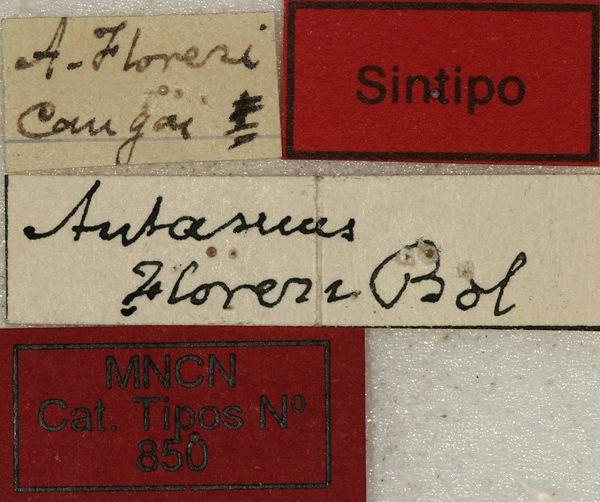 A. Floresi
Cangai
Sintipo
Antasmus
Floresi Bol
MNCN
Cat. Tipos Nº
850